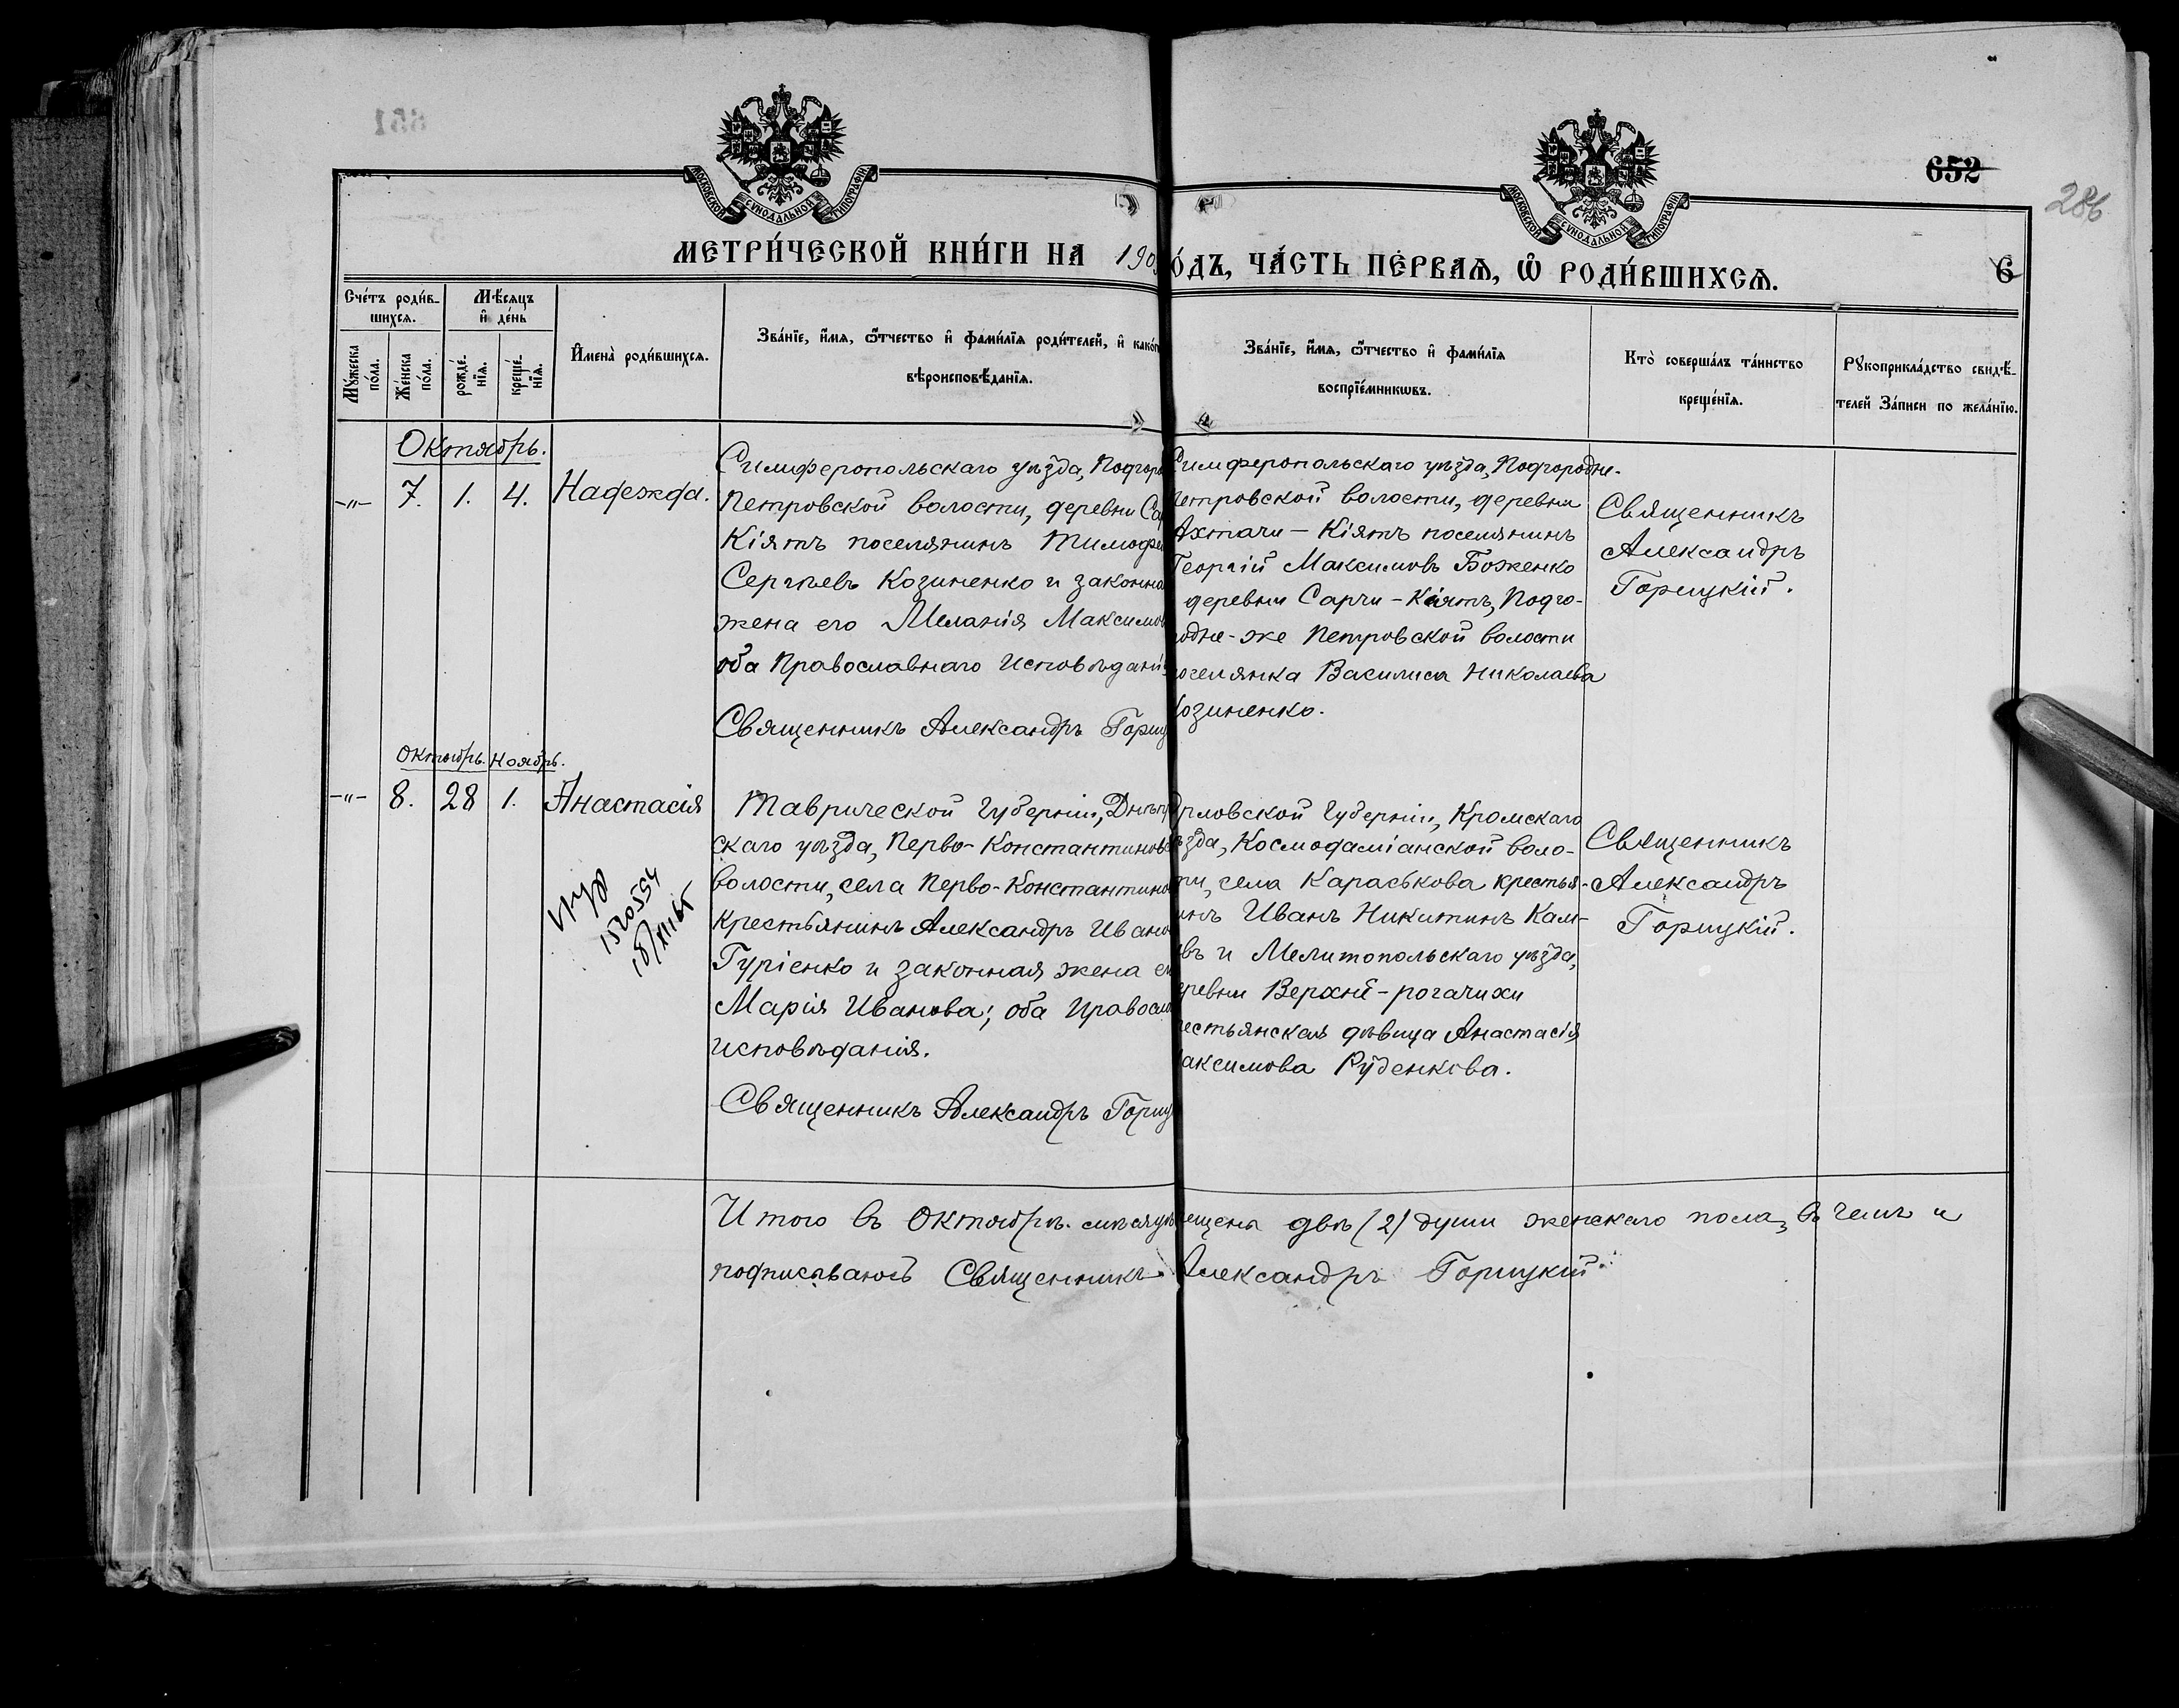 652
286
МОСКОВСКОЙ СУНОДАЛЬНОЙ ТИПОГРАФІИ
МОСКОВСКОЙ СУНОДАЛЬНОЙ ТИПОГРАФІИ
МЕТРИ́ЧЕСКОЙ КНИ́ГИ НА 190
О́ДЪ, ЧА́СТЬ ПЕ́РВАѦ, Ѡ҆ РОДИ́ВШИХСѦ.
6
Сче́тъ роди́в-
шихсѧ.
Мѣ́сѧцъ
и҆ де́нь
Мꙋ́жеска по́ла.
Же́нска по́ла.
рожде́-нїѧ.
креще́-нїѧ.
И҆мена̀ роди́вшихсѧ.
Зва́нїе, и҆́мѧ, ѻ҆́тчество и҆ фами́лїѧ роди́телей, и҆ како́г
вѣроисповѣ́данїѧ.
Зва́нїе, и҆́мѧ, ѻ҆́тчество и҆ фами́лїѧ
воспрїе́мникѡвъ.
Кто̀ соверша́лъ та́инство
креще́нїѧ.
Рꙋкоприкла́дство свидѣ́-
телей За́писи по жела́нїю.
Октябрь.
-"- 7. 1. 4. Надежда.
Симферопольскаго уѣзда, Подгоро
Петровской волости, деревни Сар
Кіятъ поселянинъ Тимофе
Сергѣевъ Козиненко и законна
жена его Меланія Максимов
оба Православнаго Исповѣдані
Священникъ Александръ Гориц
Симферопольскаго уѣзда, Подгородне-
Петровской волости, деревни
Ахтачи-Кіятъ поселянинъ
Георгій Максимовъ Боженко
деревни Сарчи-Кіятъ, Подго-
родне-же Петровской волости
поселянка Василиса Николаева
Козиненко.
Священникъ
Александръ
Горицкій.
Октябрь. Ноябрь.
-"- 8. 28 1. Анастасія
150554
18/XII 65
Таврической Губерніи, Днѣпр
скаго уѣзда, Перво-Константиновс
волости, села Перво-Константинов
крестьянинъ Александръ Ивано
Гуріенко и законная жена ег
Марія Иванова; оба Правосла
исповѣданія.
Священникъ Александръ Гориц
Орловской Губерніи, Кромскаго
ѣзда, Космодаміанской воло-
ти, села Караськова крестья-
инъ Иванъ Никитинъ Кали-
овъ и Мелитопольскаго уѣзда,
еревни Верхній-рогачихи
рестьянская дѣвица Анастасія
аксимова Руденкова.
Священникъ
Александръ
Горицкій.
Итого въ Октябрѣ мѣсяцѣ ещены двѣ (2) души женскаго пола, въ чемъ и
подписываюсь Священникъ Александръ Горицкій.